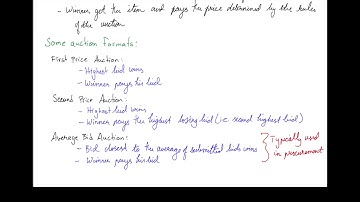 - Winner gets the item and pays the price determined by the rules
of the auction
Some auction formats:
First Price Auction:
- Highest bid wins
- Winner pays his bid
Second Price Auction:
- Highest bid wins
- Winner pays the highest losing bid (i.e second highest bid)
Average Bid Auction:
- Bid closest to the average of submitted bids wins
- Winner pays his bid
Typically used
in procurement